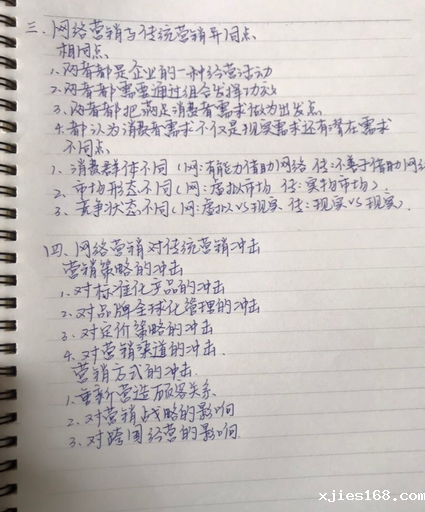 三、网络营销与传统营销异同点
相同点
1、两者都是企业的一种经营活动
2、两者都需要通过组合发挥功效
3、两者都把满足消费者需求做为出发点
4、都认为消费者需求不仅是现实需求还有潜在需求
不同点
1、消费群体不同(网:有能力借助网络 传:不善于借助网络
2、市场形态不同(网:虚拟市场 传:实物市场)
3、竞争状态不同(网:虚拟VS现实 传:现实VS现实)
四、网络营销对传统营销冲击
营销策略的冲击
1、对标准化产品的冲击
2、对品牌全球化管理的冲击
3、对定价策略的冲击
4、对营销渠道的冲击.
营销方式的冲击.
1、重新营造顾客关系
2、对营销战略的影响
3、对跨国经营的影响.
xjies168.com